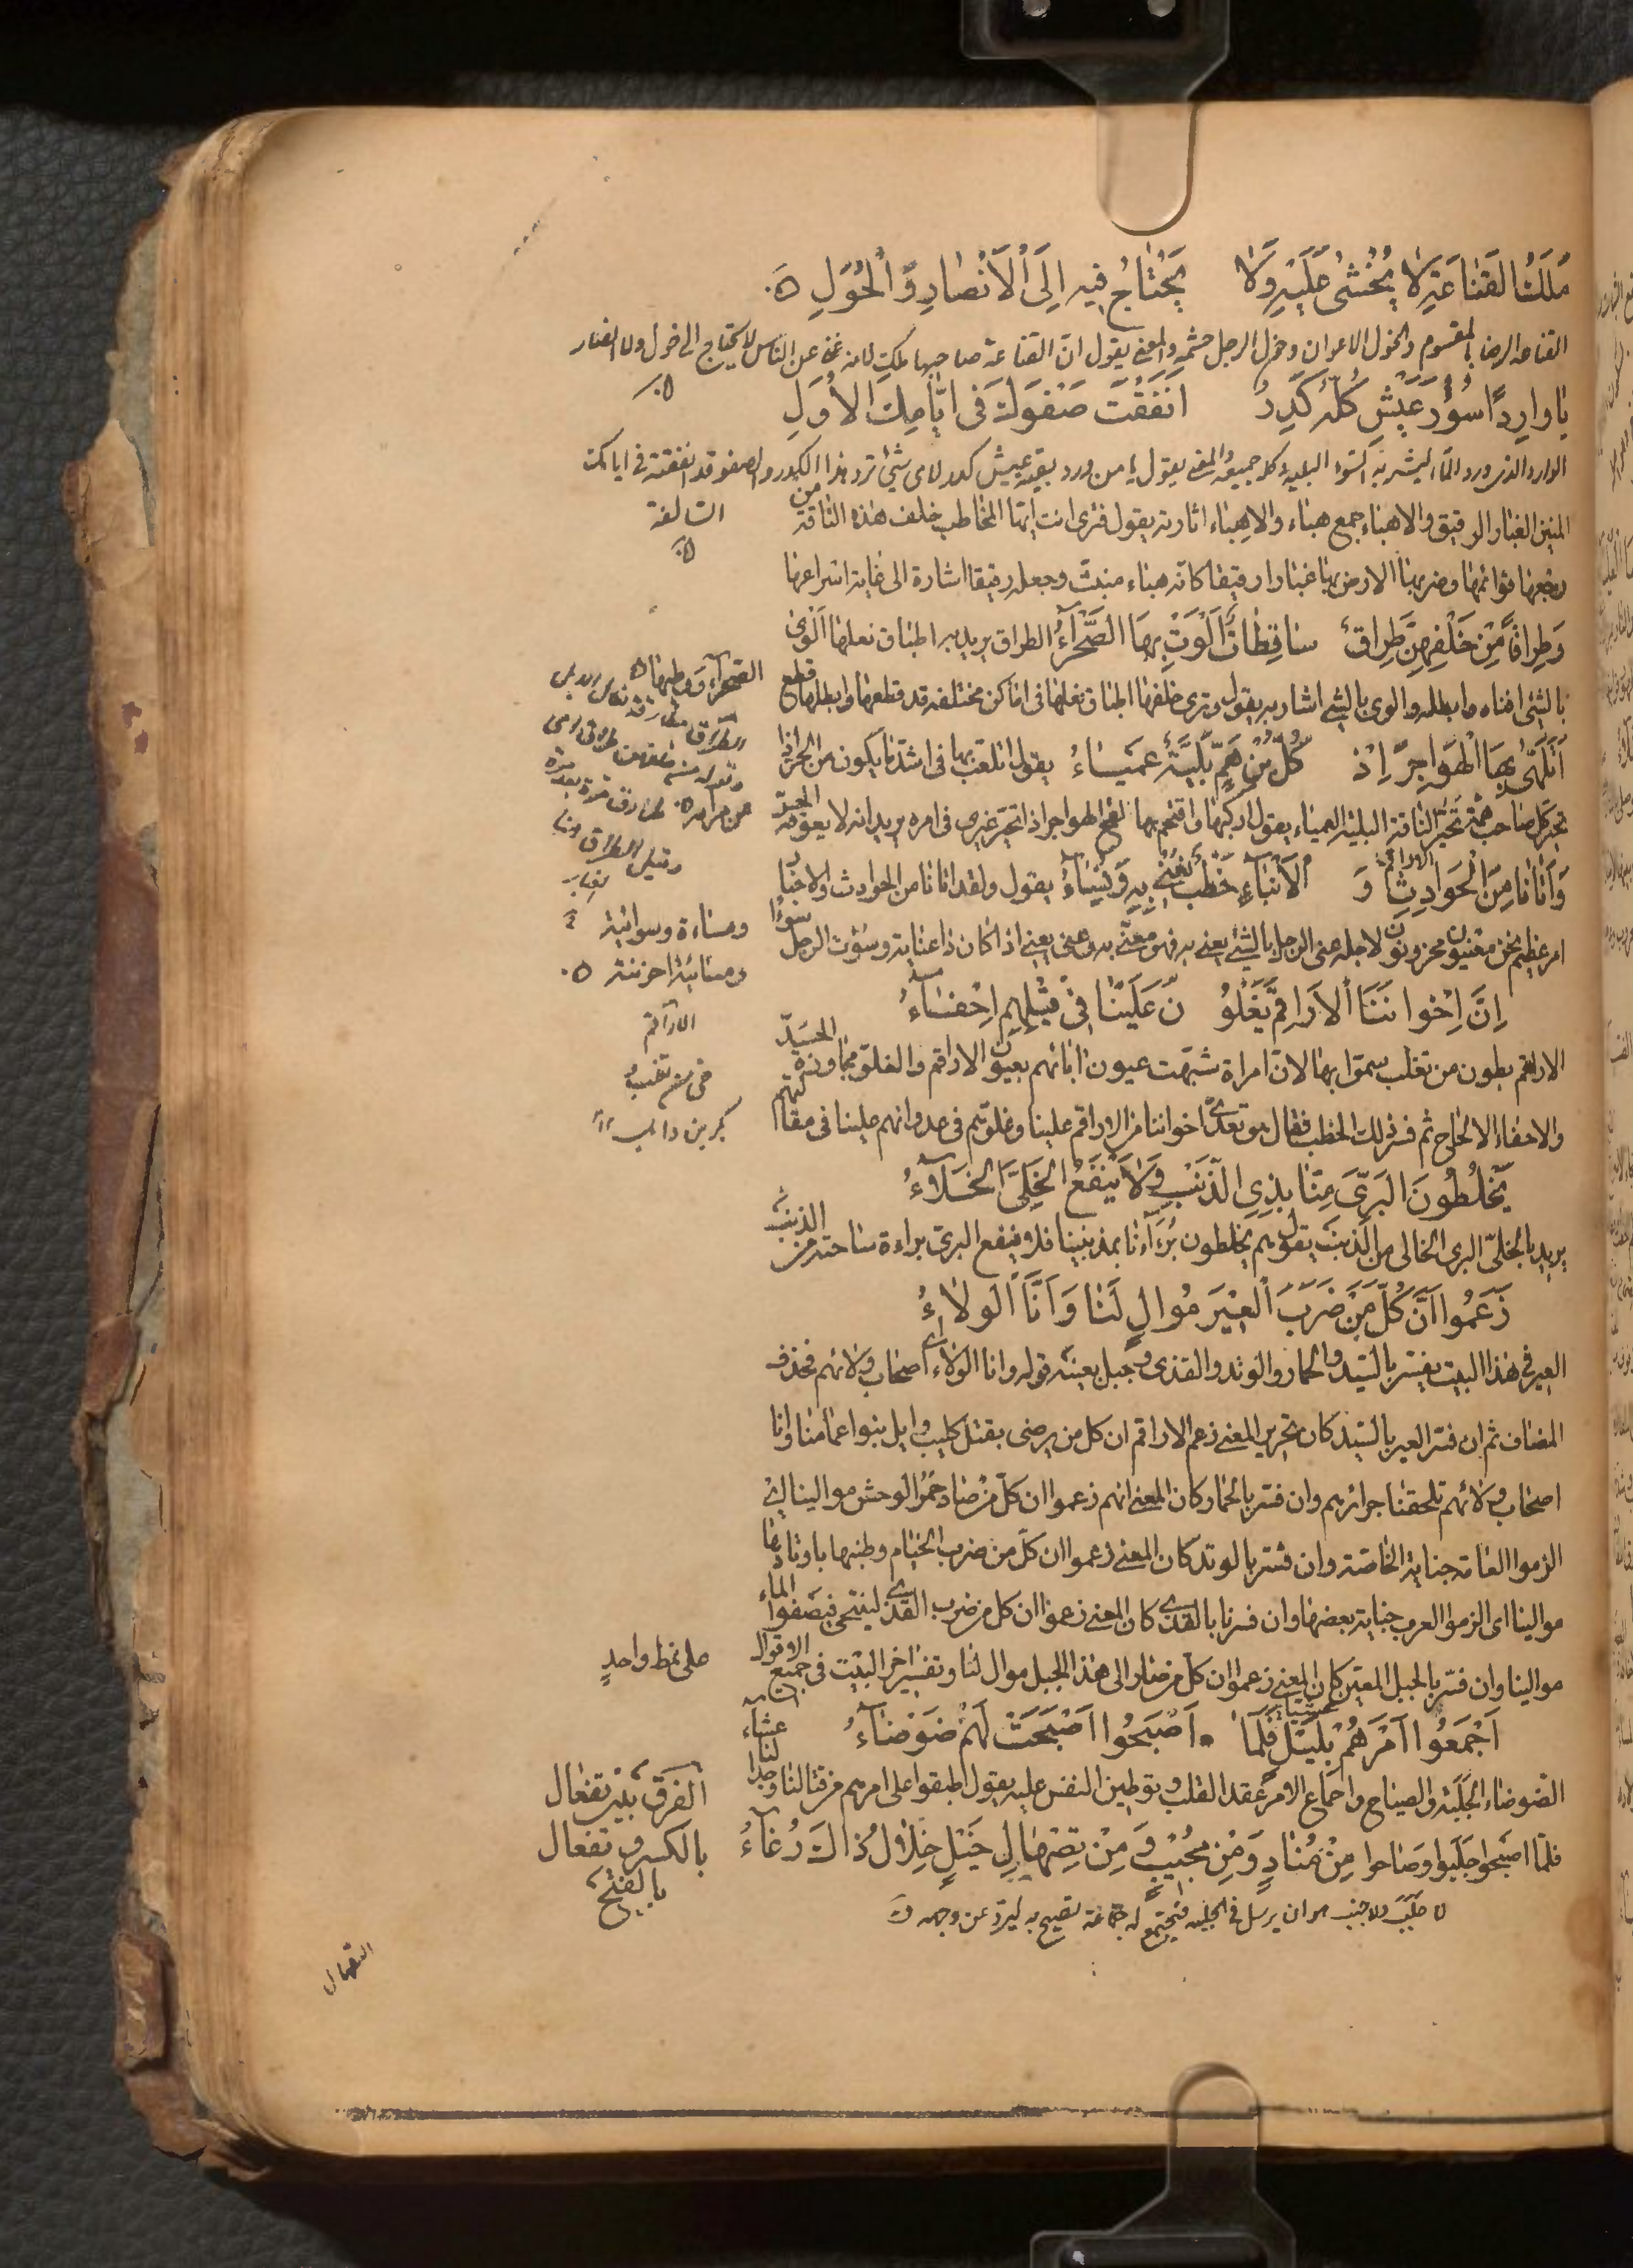 مَلَكُ القَنَاعَةِ لَا يُخْشَىٰ عَلَيْهِ وَلَا يُحْتَاجُ فِيهِ اِلَى ٱلْاَنْصَارِ وَٱلْخَوَلِ
القناعه الرضا بالمقسوم والخول الاعوان وخول الرجل حشمه والمعنى يقول انّ القناعة صاحبها ملك لانه غنى عن الناس لا يحتاج الى خول ولا انصار
يَا وَارِدًا سُؤْرَ عَيْشٍ كُلُّهُ كَدِرٌ اَنْفَقْتَ صَفْوَكَ فِى اَيَّامِكَ الْاُوَلِ
الوارد الذى ورد الماء ليشربه السؤر البقيه كله جميعه والمعنى يقول يا من ورد بقية عيش كدر لاى شئ ترد هذا الكدر والصفو قد انفقته فى ايامك
السالفة
المنين الغبار الرقيق والاهباء جمع هباء والاهباء اثارته يقول فترى انت ايها المخاطب خلف هذه الناقة من
رجعها قوائمها وضربها الارض بها غبارا رقيقا كانه هباء منبث وجعله رقيقا اشارة الى غاية اسراعها
وَطِرَاقًا مِنْ خَلْفِهِنَّ طِرَاقٌ سَاقِطَاتٌ اَلْوَتْ بِهَا الصَّحْرَآءُ الطراق يريد به اطباق نعلها الوى
بالشئ افناه وابطله والوى بالشئ اشار به يقول وترى خلفها اطباق نعلها فى اماكن مختلفه قد قطعها وابطلها قطع
الصحرآء ووطيها
اَتَلَهّٰى بِهَا الْهَوَاجِرَ اِذْ كُلُّ ابْنِ هَمٍّ بَلِيَّةٌ عَمْيَاءُ يقول اتلعب بها فى اشد ما يكون من الحر اذا
تحير كل صاحب هم تحير الناقة البلية العمياء يقول اركبها واقتحم بها لفح الهواجر اذا تحير غيرى فى امره يريد انه لا يعوقه الحر
وَاَتَانَا مِنَ الْحَوَادِثِ وَ الْاَنْبَاءِ خَطْبٌ نُعْنٰى بِهِ وَنُسَاءُ يقول ولقد اتانا من الحوادث والاخبار
امر عظيم نحن معنيون محزونون لاجله عنى الرجل بالشئ يعنى به فهو معنى به وعنى يعنى اذا كان ذا عناية وسؤت الرجل سوءًا
ومساءة وسوائية
ومسائية احزنته
اِنَّ اِخْوَانَنَا الْاَرَاقِمَ يَغْلُو نَ عَلَيْنَا فِى قِيْلِهِمْ اِحْفَاءُ
الاراقم
الاراقم بطون من تغلب سموا بها لان امراة شبهت عيون ابائهم بعيون الاراقم والغلو مجاوزة الحد
والاحفاء الالحاح ثم فسر ذلك الخطب فقال هو تعدى اخواننا من الاراقم علينا وغلوهم فى عدوانهم علينا فى مقالتهم
يَخْلِطُونَ الْبَرِىَّ مِنَّا بِذِى الذَّنْبِ وَلَا يَنْفَعُ الْخَلِىَّ الْخَلَآءُ
يريد بالخلى البرى الخالى من الذنب يقول هم يخلطون برءآءنا بمذنبينا فلا ينفع البرى براءة ساحته من الذنب
زَعَمُوا اَنَّ كُلَّ مَنْ ضَرَبَ الْعَيْرَ مُوَالٍ لَنَا وَاَنَّا الْوَلَاءُ
العير فى هذا البيت يفسر بالسيد والحمار والوتد والقذى وجبل بعينه قوله وانا الولاء اى اصحاب ولائهم فحذف
المضاف ثم ان فسر العير بالسيد كان تحرير المعنى زعم الاراقم ان كل من يرضى بقتل كليب وايل بنوا اعمامنا وانا
اصحاب ولائهم تلحقنا جرائرهم وان فسر بالحمار كان المعنى انهم زعموا ان كل من صاد حمر الوحش موالينا اى
الزموا العامة جناية الخاصة وان فسر بالوتد كان المعنى زعموا ان كل من ضرب الخيام وطنبها باوتادها
موالينا اى الزموا العرب جناية بعضها وان فسرنا بالقذى كان المعنى زعموا ان كل من ضرب القذى ليتنحى فيصفوا الماء
موالينا وان فسر بالجبل المعين كان المعنى زعموا ان كل من صار الى هذا الجبل موال لنا وتفسير اخر البيت فى جميع الاقوال
على نمط واحد
اَجْمَعُوا اَمْرَهُمْ بِلَيْلٍ فَلَمَّا اَصْبَحُوا اَصْبَحَتْ لَهُمْ ضَوْضَآءُ
عشآء
الضوضاء الجلبة والصياح واجماع الامر عقد القلب وتوطين النفس عليه يقول اطبقوا على امرهم من قتالنا وجدالنا
فلما اصبحوا جلبوا وصاحوا مِنْ مُنَادٍ وَمِنْ مُجِيْبٍ وَ مِنْ تَصْهَالِ خَيْلٍ خِلَالَ ذَاكَ رُغَآءُ
الفرق بين تفعال
بالكسر وتفعال
بالفتح
لا جلب ولا جنب هو ان يرسل فى الحلبه فيجتمع له جماعة تصيح به ليرد عن وجهه
التصهال